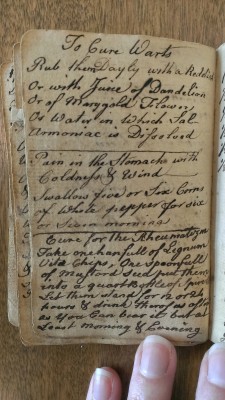 To Cure Warts
Rub them Dayly with a Reddish
Or with Juice of Dandelion
Or of Marygold Flowers
Or Water in Which Sal
Armoniac is Disolved
Pain in the Stomach with
Coldness & Wind
Swallow five or Six Corns
of whole pepper for six
or Seven mornings
Cure for the Rheumatizm
Take one hanfull of Lignum
Vitæ Chips, One spoonfull
of Mustard Seed put them
into a quart Bottle of
Let them stand for 12 or 24
hours & drink thereof as often
as you Can bear it but at
Least morning & Evening